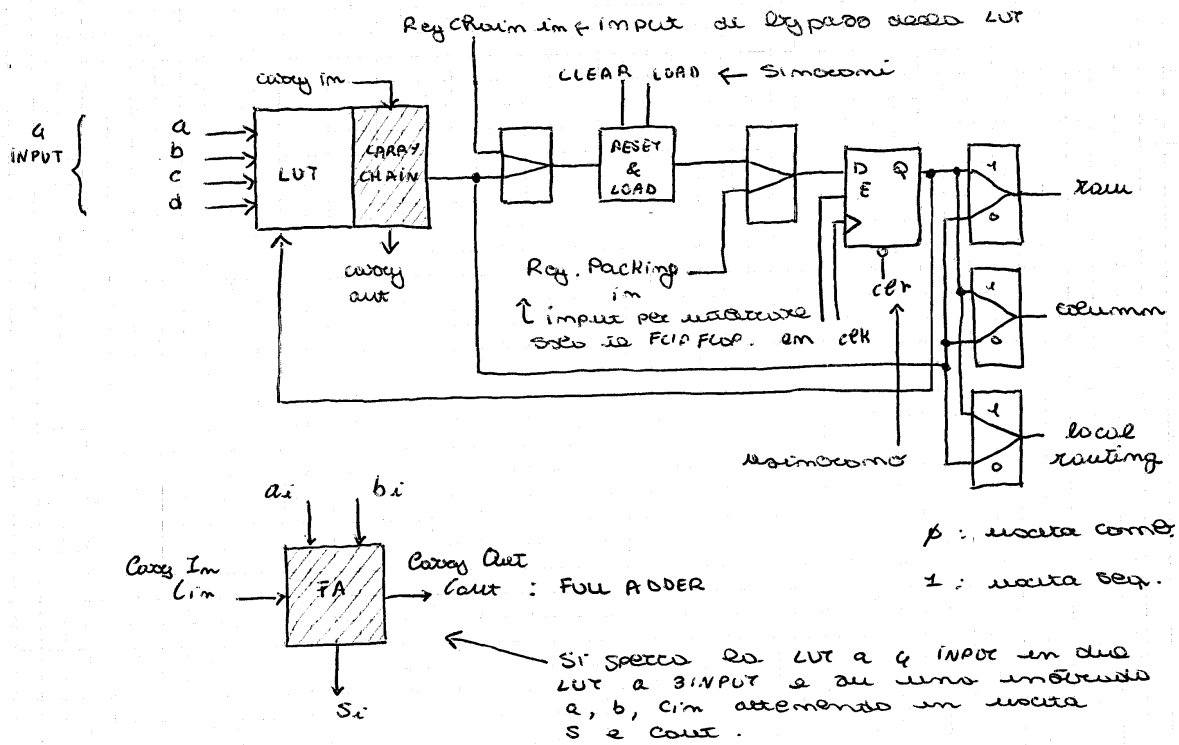 Reg Chain in ← input di bypass della LUT
CLEAR LOAD ← Sincroni
carry in
4
INPUT
a
b
c
d
LUT
CARRY
CHAIN
RESET
&
LOAD
D Q
E
1
0
row
carry
out
Reg. Packing
in
input per utilizzare
solo il FLIP FLOP.
en clk
clr
1
0
column
1
0
local
routing
asincrono
ai bi
Carry In
Cin
FA
Carry Out
Cout : FULL ADDER
Si
0 : uscita comb.
1 : uscita seq.
Si spezza la LUT a 4 INPUT in due
LUT a 3 INPUT e
a, b, Cin ottenendo in uscita
S e Cout.